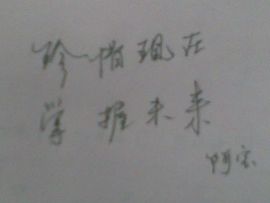 珍惜现在
掌握未来
阿宗